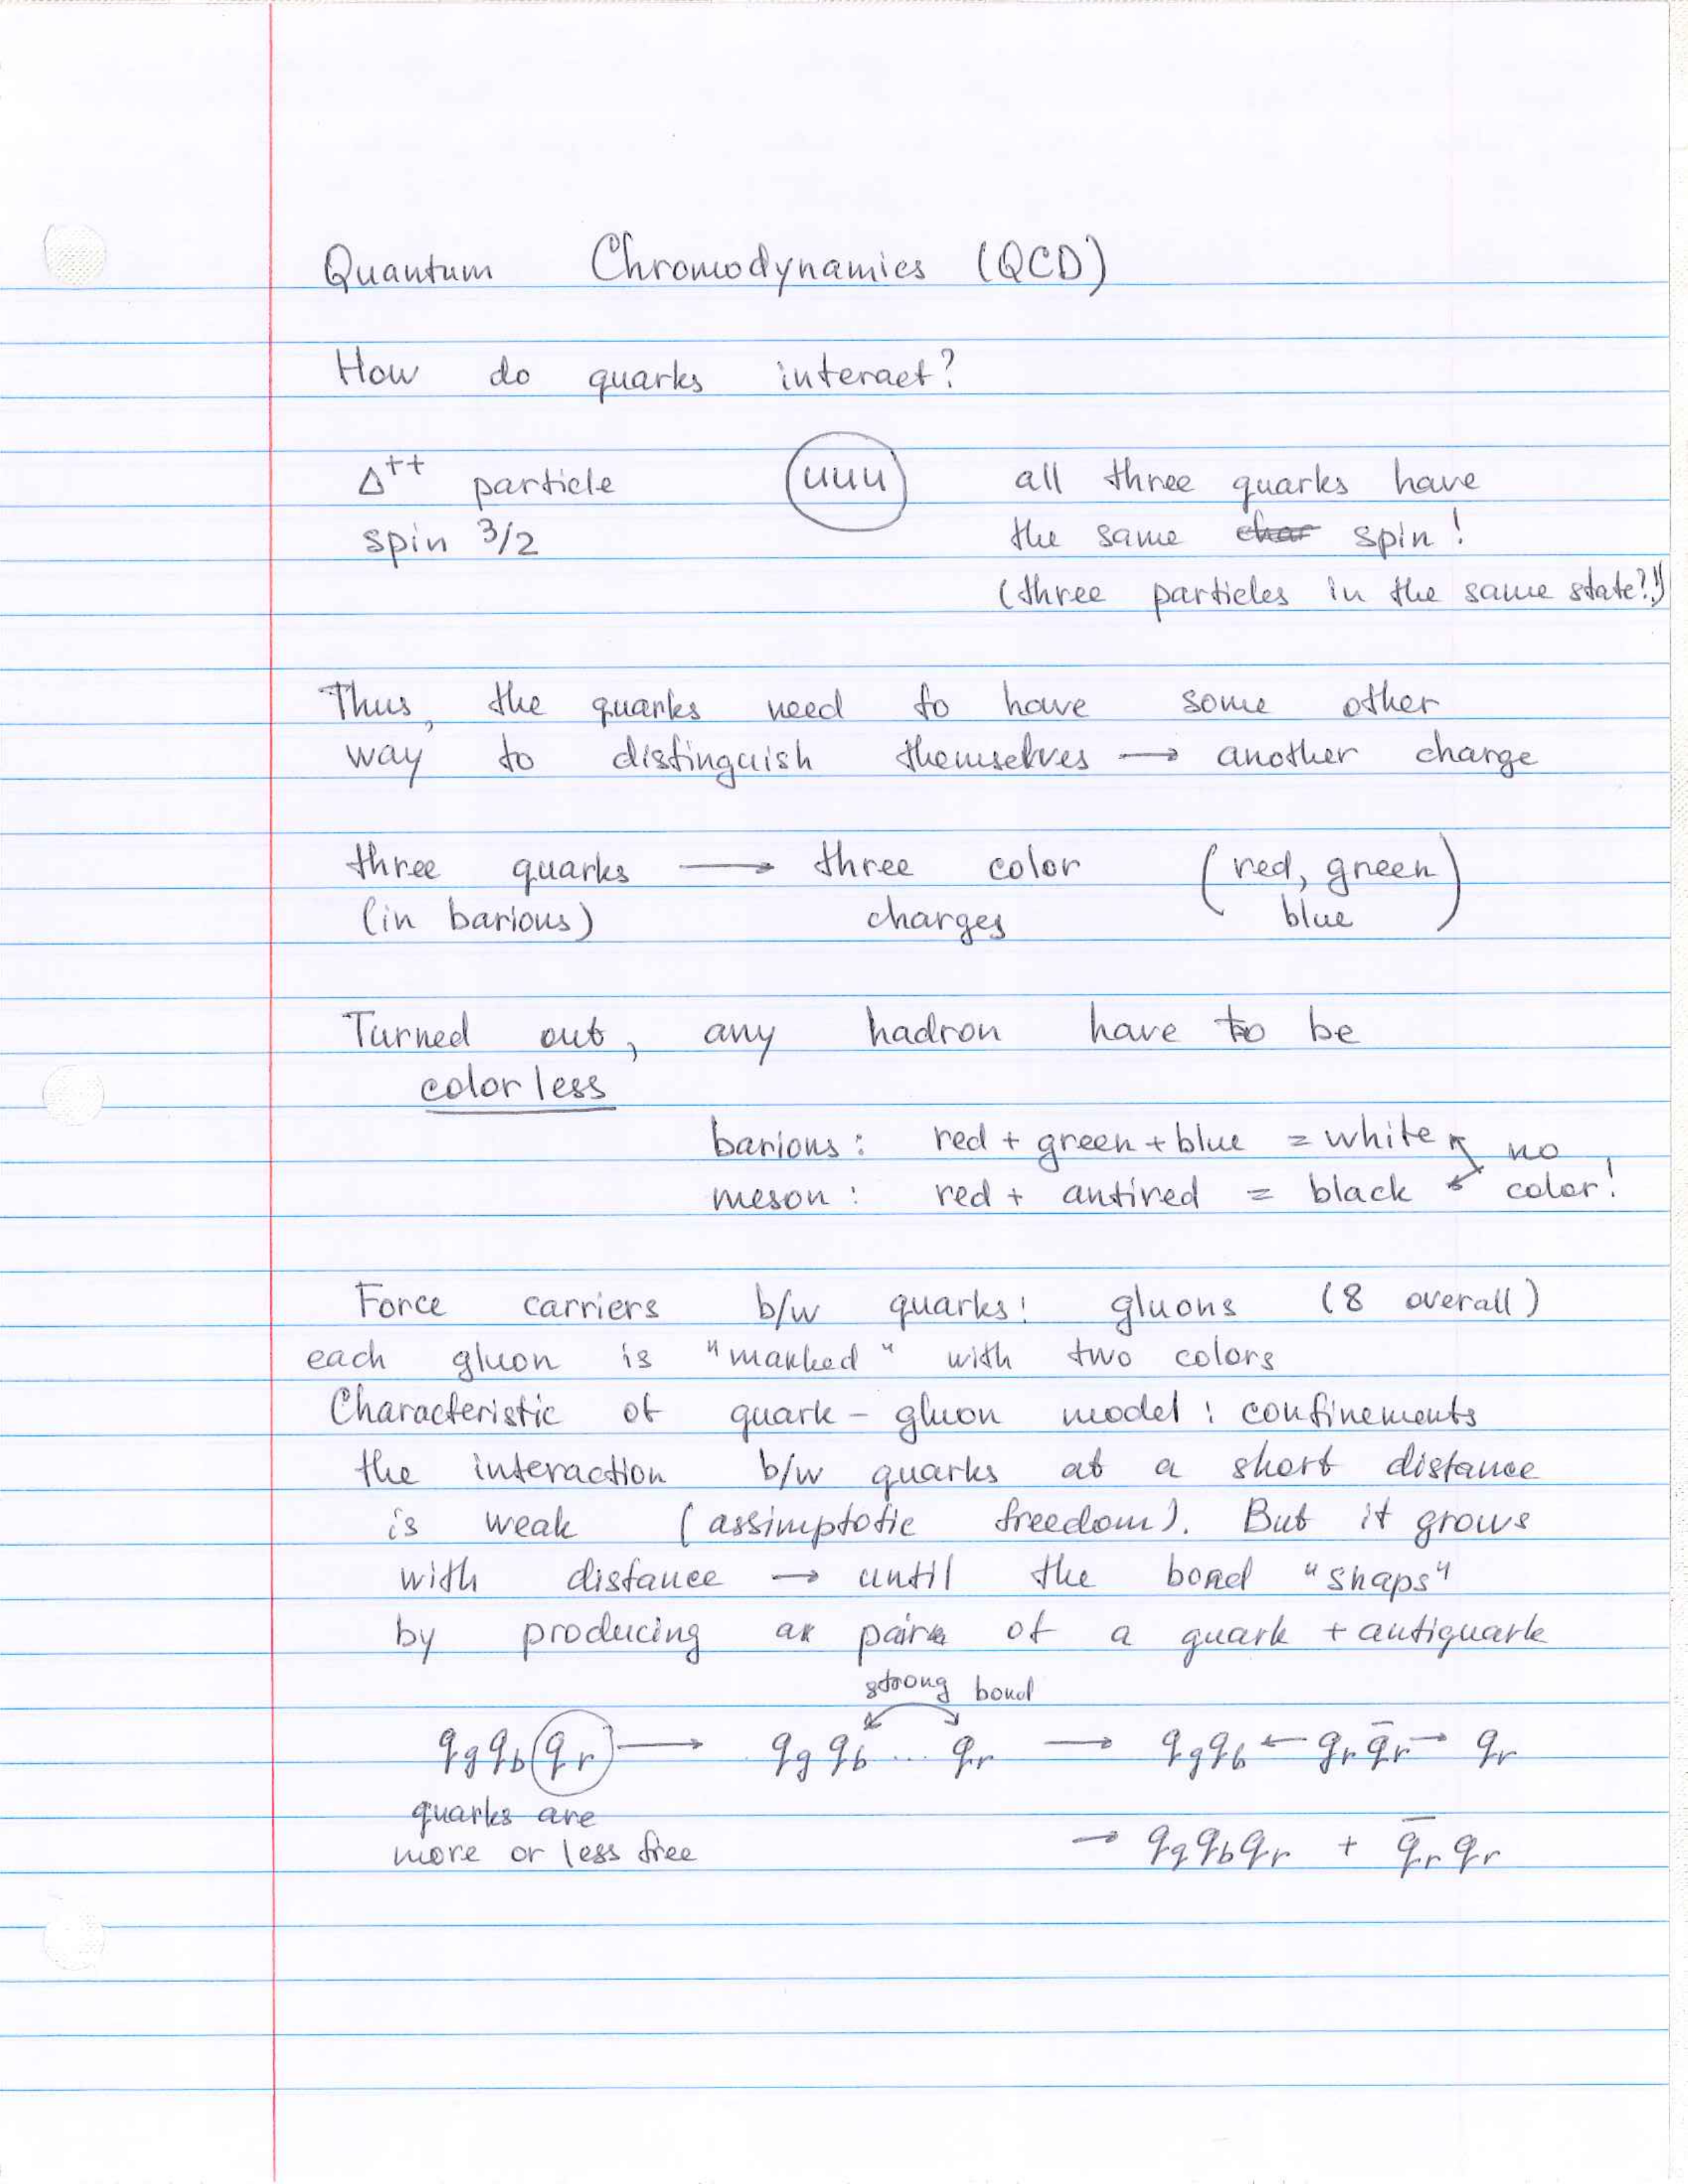 Quantum Chromodynamics (QCD)
How do quarks interact?
Δ⁺⁺ particle uuu all three quarks have
spin 3/2 the same char spin!
(three particles in the same state?!)
Thus, the quarks need to have some other
way to distinguish themselves → another charge
three quarks → three color (red, green
(in barions) charges blue)
Turned out, any hadron have to be
colorless
barions: red + green + blue = white no
meson: red + antired = black color!
Force carriers b/w quarks: gluons (8 overall)
each gluon is "marked" with two colors
Characteristic of quark-gluon model: confinements
the interaction b/w quarks at a short distance
is weak (assimptotic freedom). But it grows
with distance → until the bond "snaps"
by producing a pair of a quark + antiquark
strong bond
q_g q_b q_r → q_g q_b ... q_r → q_g q_b ← q_r q̄_r → q_r
quarks are
more or less free → q_g q_b q_r + q̄_r q_r